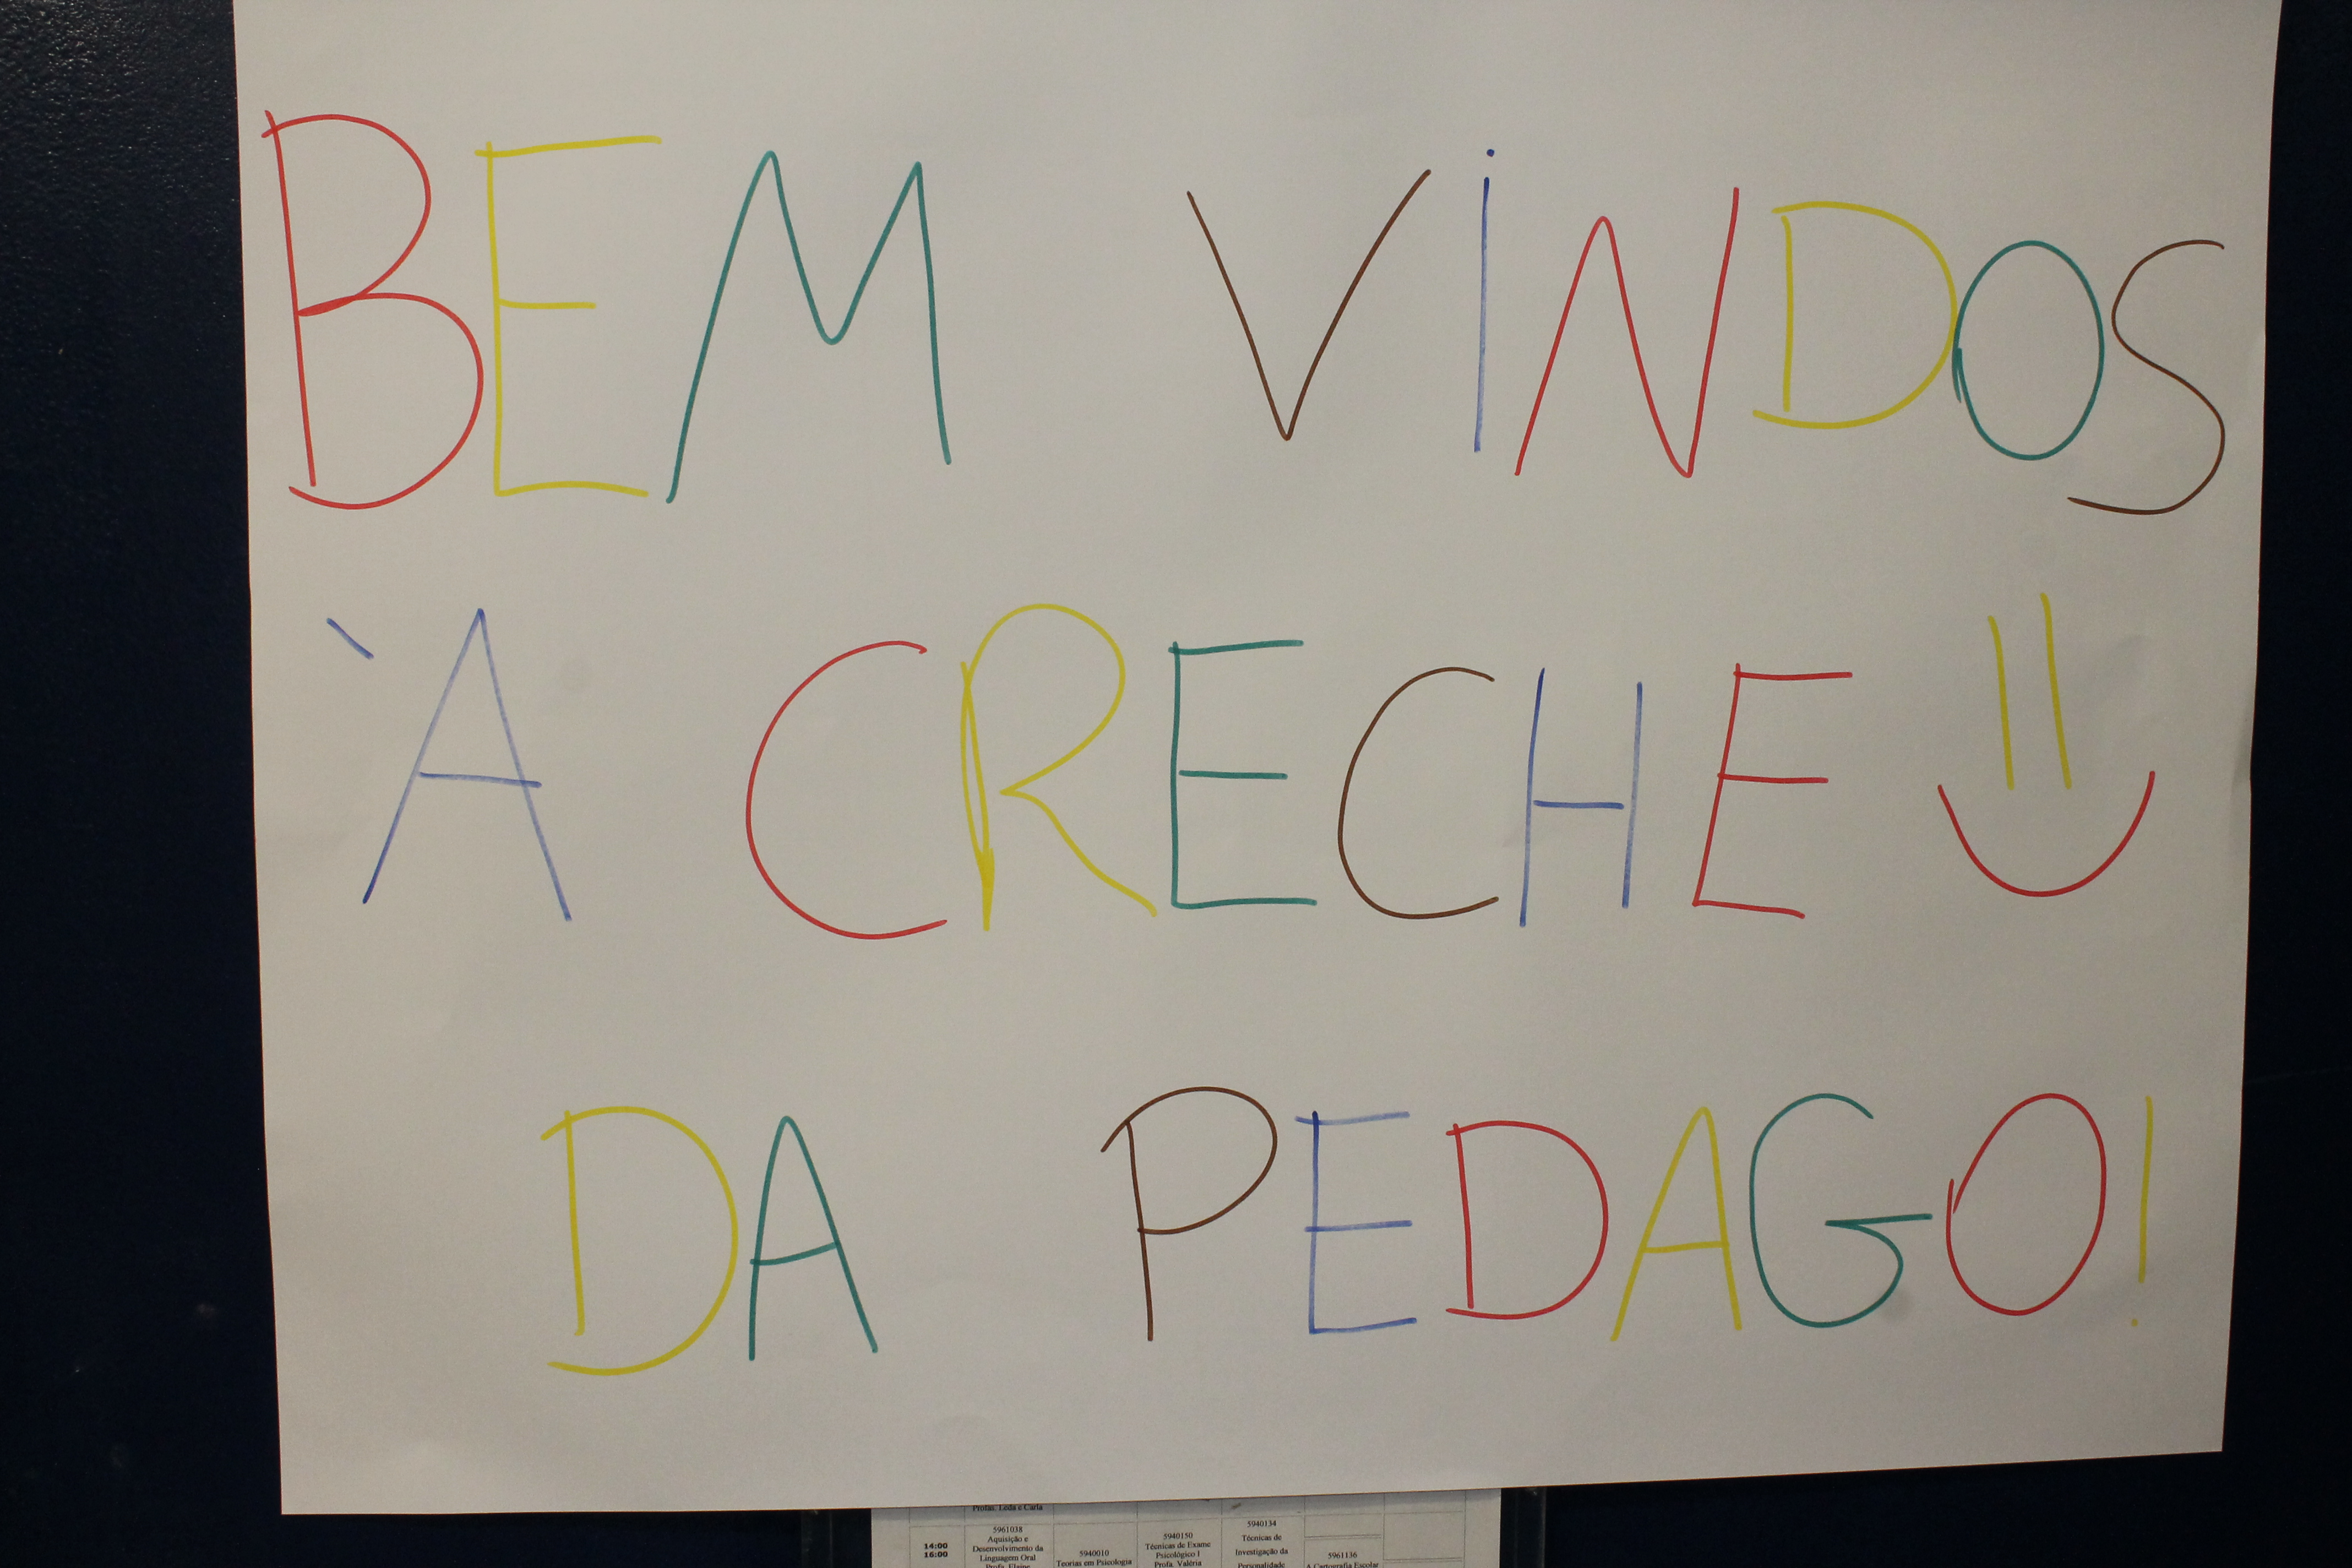 BEM VINDOS
À CRECHE =)
DA PEDAGO!
Profas. Leda e Carla
14:00
16:00
5961038
Aquisição e
Desenvolvimento da
Linguagem Oral
Profa. Elaine
5940010
Teorias em Psicologia
5940150
Técnicas de Exame
Psicológico I
Profa. Valéria
5940134
Técnicas de
Investigação da
Personalidade
5961136
A Cartografia Escolar